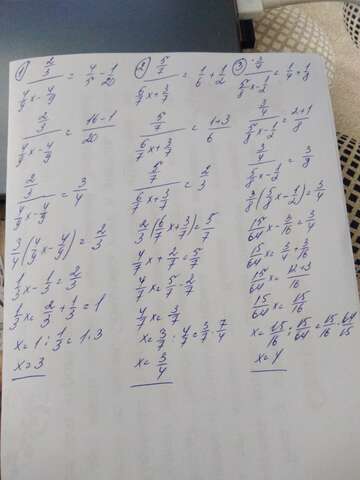 ① (2/3)/(4/9x-4/9) = 4/5 - 1/20
(2/3)/(4/9x-4/9) = (16-1)/20
(2/3)/(4/9x-4/9) = 3/4
3/4(4/9x-4/9) = 2/3
1/3x-1/3=2/3
1/3x=2/3+1/3=1
x=1:1/3=1·3
x=3
② (5/7)/(6/7x+3/7) = 1/6+1/2
(5/7)/(6/7x+3/7) = (1+3)/6
(5/7)/(6/7x+3/7) = 2/3
2/3(6/7x+3/7)=5/7
4/7x+2/7=5/7
4/7x=5/7-2/7
4/7x=3/7
x=3/7:4/7=3/7·7/4
x=3/4
③ (3/4)/(5/8x-1/2) = 1/4+1/8
(3/4)/(5/8x-1/2) = (2+1)/8
(3/4)/(5/8x-1/2) = 3/8
3/8(5/8x-1/2)=3/4
15/64x-3/16=3/4
15/64x=3/4+3/16
15/64x=(12+3)/16
15/64x=15/16
x=15/16:15/64=15/16·64/15
x=4